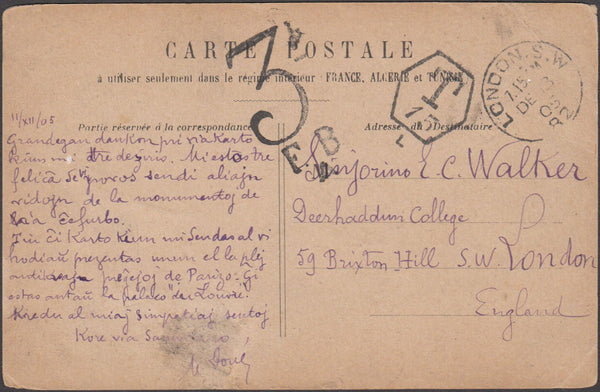 CARTE POSTALE
à utiliser seulement dans le régime intérieur : FRANCE, ALGERIE et TUNISIE
Partie réservée à la correspondance
Adresse du Destinataire
3
T
L
LONDON. S.W
7.15
DE
11/XII/05
Grandegan dankon pri via Karto
kiun mi tre deziris. Mi estos tre
feliĉa se vi povos sendi aliajn
vidojn de la monumentoj de
ĉefurbo.
Tiu ĉi Karto kiun mi sendas al vi
hodiaŭ prezentas unum el la plej
palacoj de Parizo. Ĝi
estas antaŭ la palaco "du Louvre".
Kredu al miaj simpatiaj sentoj
Kore via
Sinjorino E. C. Walker
Deerhaddum College
59 Brixton Hill S.W. London
England